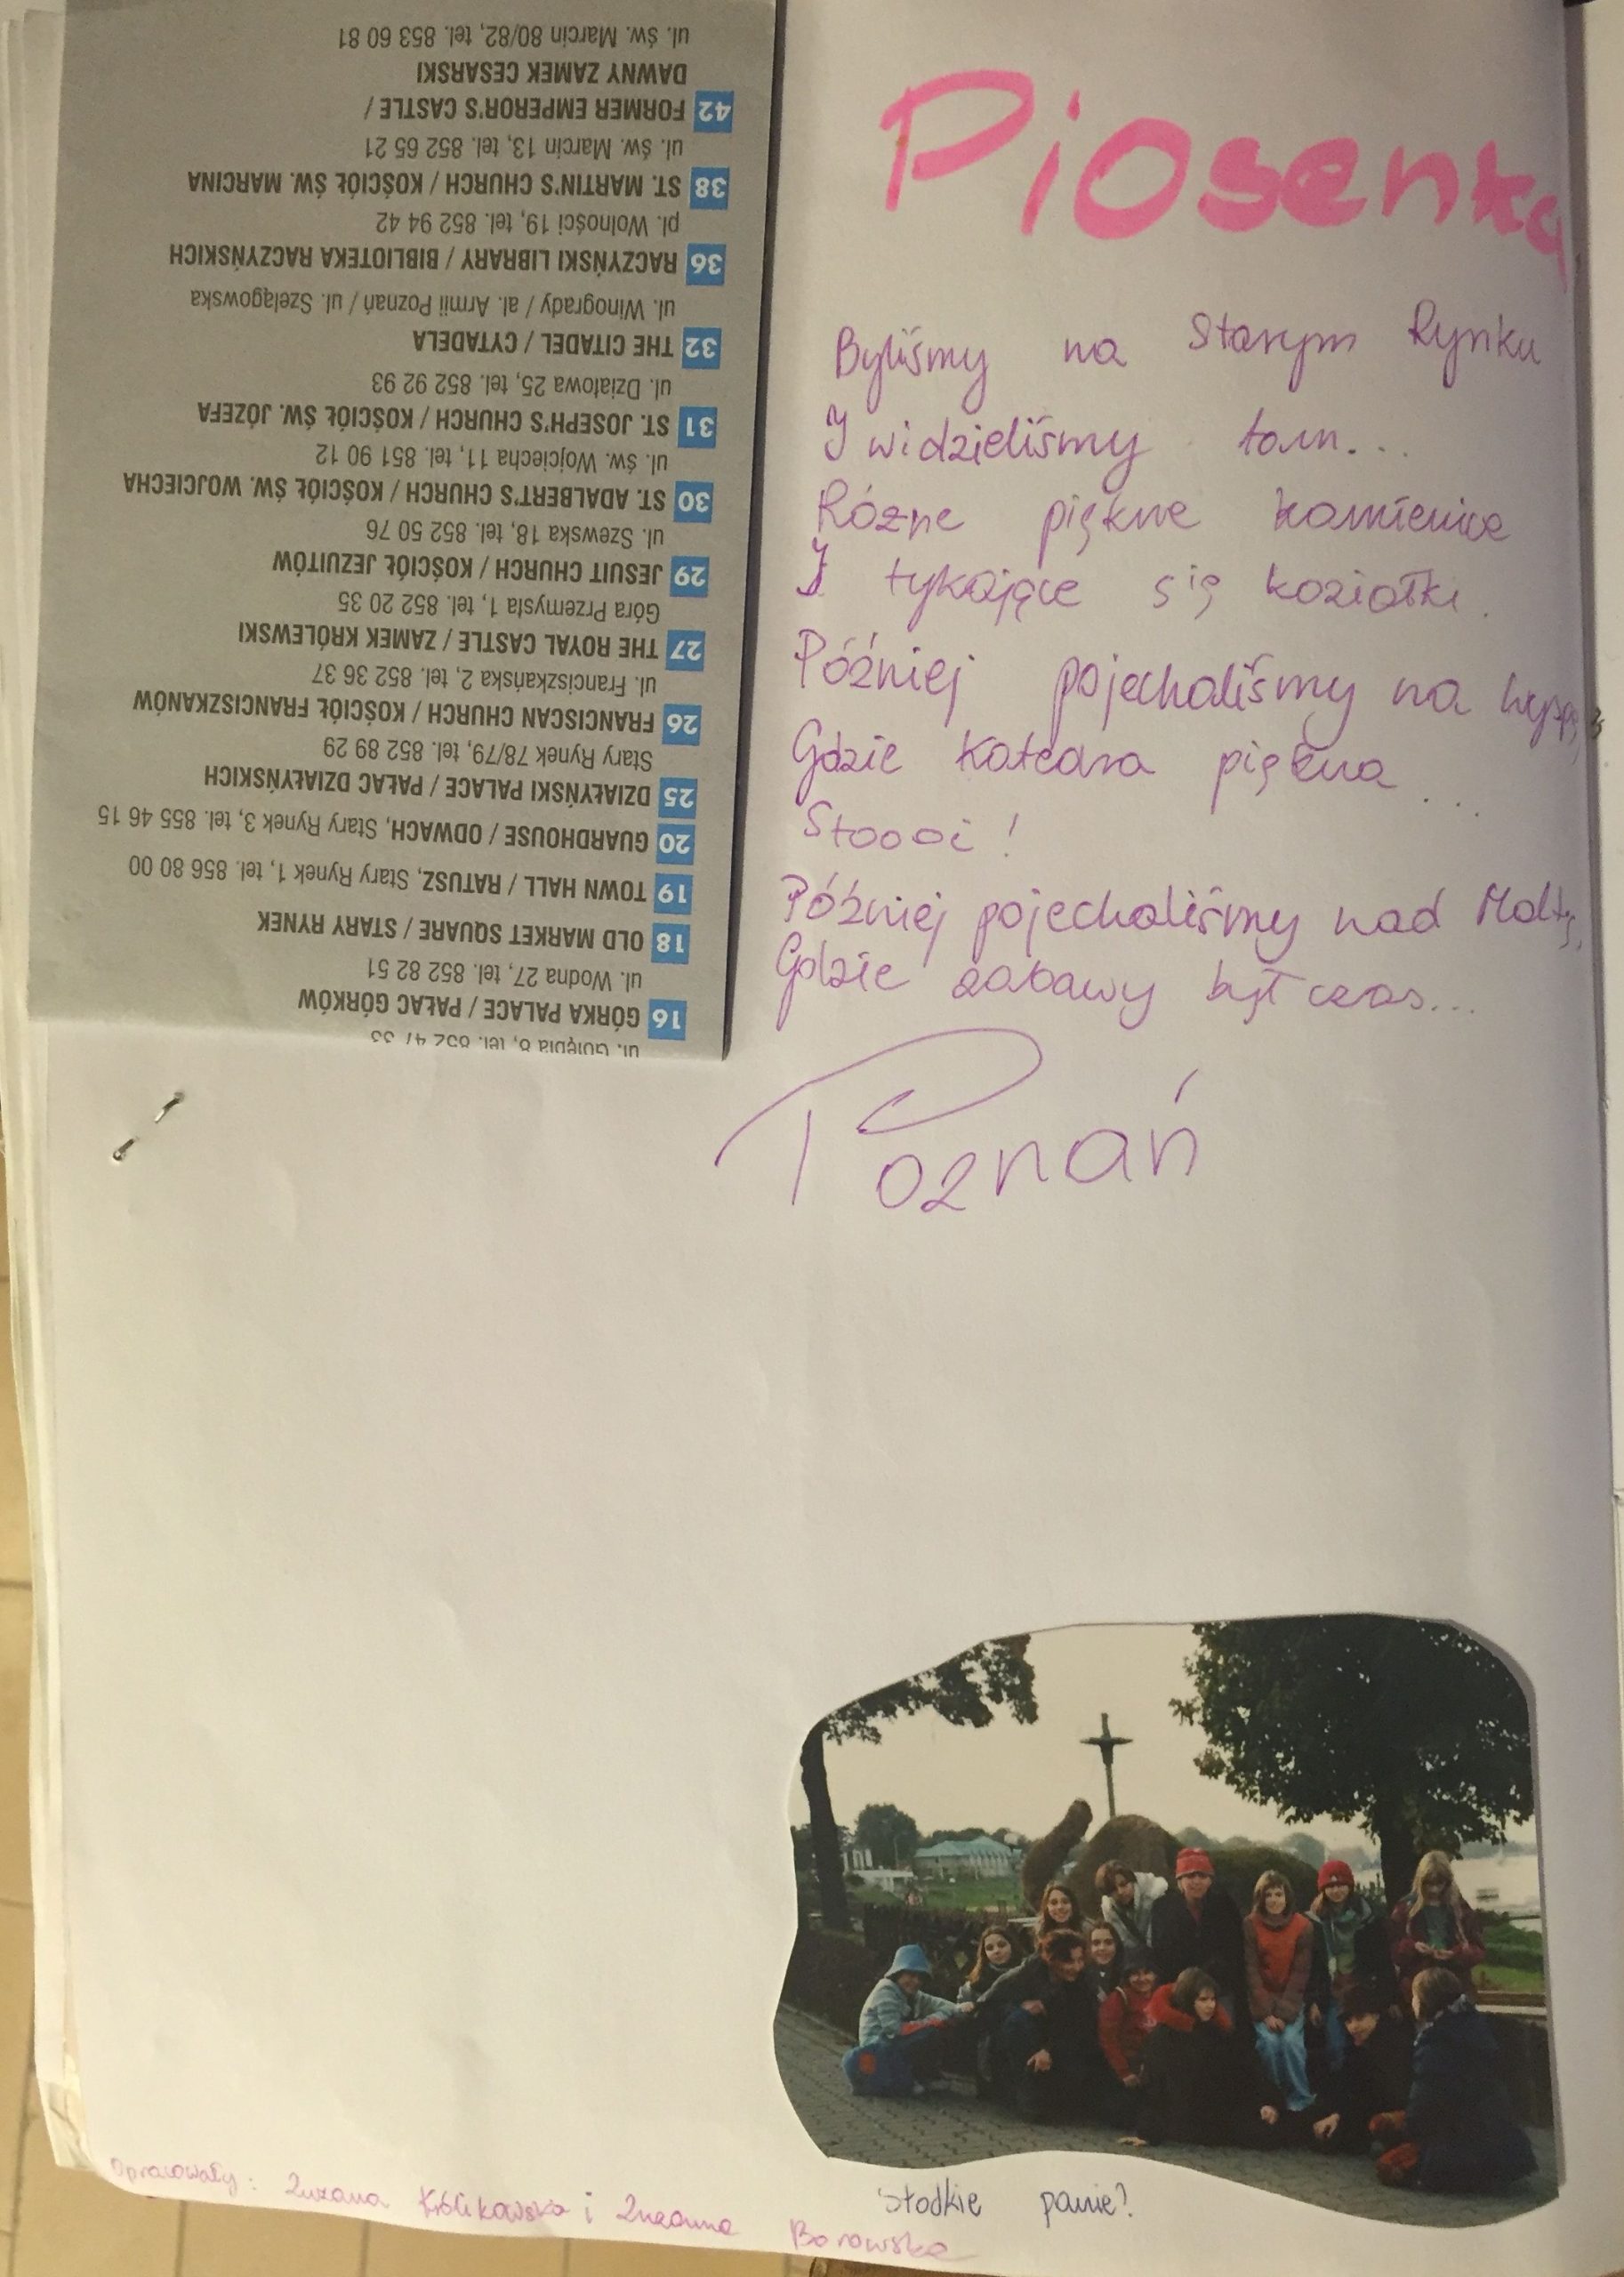 Piosenka
Byliśmy na Starym Rynku
I widzieliśmy tam...
Różne piękne kamienice
I tykające się koziołki.
Później pojechaliśmy na wyspę,
Gdzie Katedra piękna...
Stoooi!
Później pojechaliśmy nad Maltę,
Gdzie zabawy był czas...
Poznań
ul. Gołębia 8, tel. 852 47 33
16 GÓRKA PALACE / PAŁAC GÓRKÓW
ul. Wodna 27, tel. 852 82 51
18 OLD MARKET SQUARE / STARY RYNEK
19 TOWN HALL / RATUSZ, Stary Rynek 1, tel. 856 80 00
20 GUARDHOUSE / ODWACH, Stary Rynek 3, tel. 855 46 15
25 DZIAŁYŃSKI PALACE / PAŁAC DZIAŁYŃSKICH
Stary Rynek 78/79, tel. 852 89 29
26 FRANCISCAN CHURCH / KOŚCIÓŁ FRANCISZKANÓW
ul. Franciszkańska 2, tel. 852 36 37
27 THE ROYAL CASTLE / ZAMEK KRÓLEWSKI
Góra Przemysła 1, tel. 852 20 35
29 JESUIT CHURCH / KOŚCIÓŁ JEZUITÓW
ul. Szewska 18, tel. 852 50 76
30 ST. ADALBERT'S CHURCH / KOŚCIÓŁ ŚW. WOJCIECHA
ul. św. Wojciecha 11, tel. 851 90 12
31 ST. JOSEPH'S CHURCH / KOŚCIÓŁ ŚW. JÓZEFA
ul. Działowa 25, tel. 852 92 93
32 THE CITADEL / CYTADELA
ul. Winogrady / al. Armii Poznań / ul. Szelągowska
36 RACZYŃSKI LIBRARY / BIBLIOTEKA RACZYŃSKICH
pl. Wolności 19, tel. 852 94 42
38 ST. MARTIN'S CHURCH / KOŚCIÓŁ ŚW. MARCINA
ul. św. Marcin 13, tel. 852 65 21
42 FORMER EMPEROR'S CASTLE /
DAWNY ZAMEK CESARSKI
ul. św. Marcin 80/82, tel. 853 60 81
Słodkie panie?
Opracowały: Zuzana Królikowska i Zuzanna Borowska